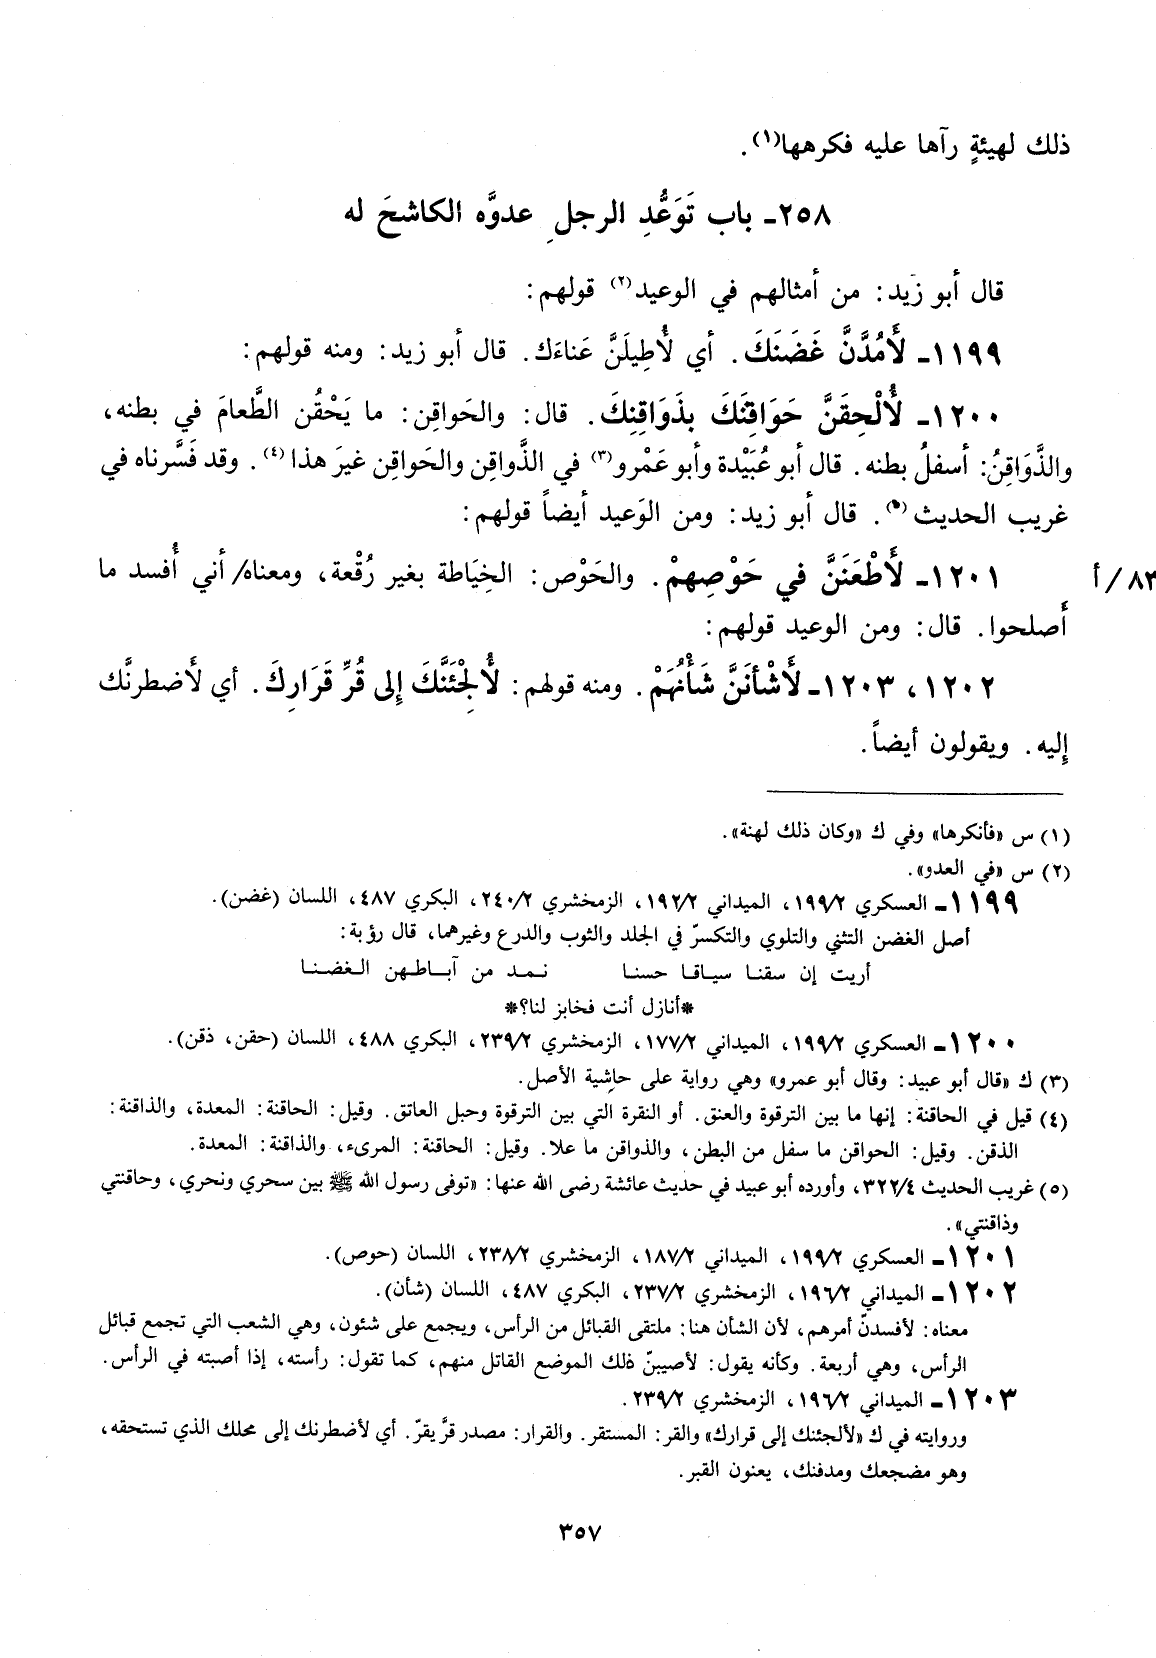 ذلك لهيئةٍ رآها عليه فكرهها(١).
٢٥٨ـ باب تَوَعُّدِ الرجلِ عدوَّه الكاشحَ له
قال أبو زيد: من أمثالهم في الوعيد(٢) قولهم:
١١٩٩ـ لَأَمُدَّنَّ غَضَنَكَ. أي لأُطِيلَنَّ عَناءَك. قال أبو زيد: ومنه قولهم:
١٢٠٠ـ لَأُلْحِقَنَّ حَوَاقِنَكَ بِذَوَاقِنِكَ. قال: والحَواقِن: ما يَحْقُن الطَّعامَ في بطنه،
والذَّوَاقِنُ: أسفلُ بطنه. قال أبو عُبَيْدة وأبو عَمْرو(٣) في الذَّواقِن والحَواقِن غيرَ هذا(٤). وقد فَسَّرناه في
غريب الحديث(٥). قال أبو زيد: ومن الوَعيد أيضاً قولهم:
٨٢/أ
١٢٠١ـ لَأَطْعَنَنَّ في حَوْصِهِمْ. والحَوْص: الخِيَاطة بغير رُقْعة، ومعناه/ أني أُفسد ما
أَصلحوا. قال: ومن الوعيد قولهم:
١٢٠٢، ١٢٠٣ـ لَأَشْأَنَنَّ شَأْنَهُمْ. ومنه قولهم: لَأُلْجِئَنَّكَ إِلى قُرِّ قَرَارِكَ. أي لَأضطرنَّك
إِليه. ويقولون أيضاً.
(١) س «فأنكرها» وفي ك «وكان ذلك لهنة».
(٢) س «في العدو».
١١٩٩ـ العسكري ١٩٩/٢، الميداني ١٩٢/٢، الزمخشري ٢٤٠/٢، البكري ٤٨٧، اللسان (غضن).
أصل الغضن التثني والتلوي والتكسرّ في الجلد والثوب والدرع وغيرهما، قال رؤبة:
أريت إن سقنا سياقا حسنا نمد من آباطهن الغضنا
*أنازل أنت فخابز لنا؟*
١٢٠٠ـ العسكري ١٩٩/٢، الميداني ١٧٧/٢، الزمخشري ٢٣٩/٢، البكري ٤٨٨، اللسان (حقن، ذقن).
(٣) ك «قال أبو عبيد: وقال أبو عمرو» وهي رواية على حاشية الأصل.
(٤) قيل في الحاقنة: إنها ما بين الترقوة والعنق. أو النقرة التي بين الترقوة وحبل العاتق. وقيل: الحاقنة: المعدة، والذاقنة:
الذقن. وقيل: الحواقن ما سفل من البطن، والذواقن ما علا. وقيل: الحاقنة: المرىء، والذاقنة: المعدة.
(٥) غريب الحديث ٣٢٢/٤، وأورده أبو عبيد في حديث عائشة رضى الله عنها: «توفى رسول الله ﷺ بين سحري ونحري، وحاقنتي
وذاقنتي».
١٢٠١ـ العسكري ١٩٩/٢، الميداني ١٨٧/٢، الزمخشري ٢٣٨/٢، اللسان (حوص).
١٢٠٢ـ الميداني ١٩٦/٢، الزمخشري ٢٣٧/٢، البكري ٤٨٧، اللسان (شأن).
معناه: لأفسدنّ أمرهم، لأن الشأن هنا: ملتقى القبائل من الرأس، ويجمع على شئون، وهي الشعب التي تجمع قبائل
الرأس، وهي أربعة. وكأنه يقول: لأصيبنّ ذلك الموضع القاتل منهم، كما تقول: رأسته، إذا أصبته في الرأس.
١٢٠٣ـ الميداني ١٩٦/٢، الزمخشري ٢٣٩/٢.
وروايته في ك «لألجئنك إلى قرارك» والقر: المستقر. والقرار: مصدر قرَّ يقرّ. أي لأضطرنك إلى محلك الذي تستحقه،
وهو مضجعك ومدفنك، يعنون القبر.
٣٥٧